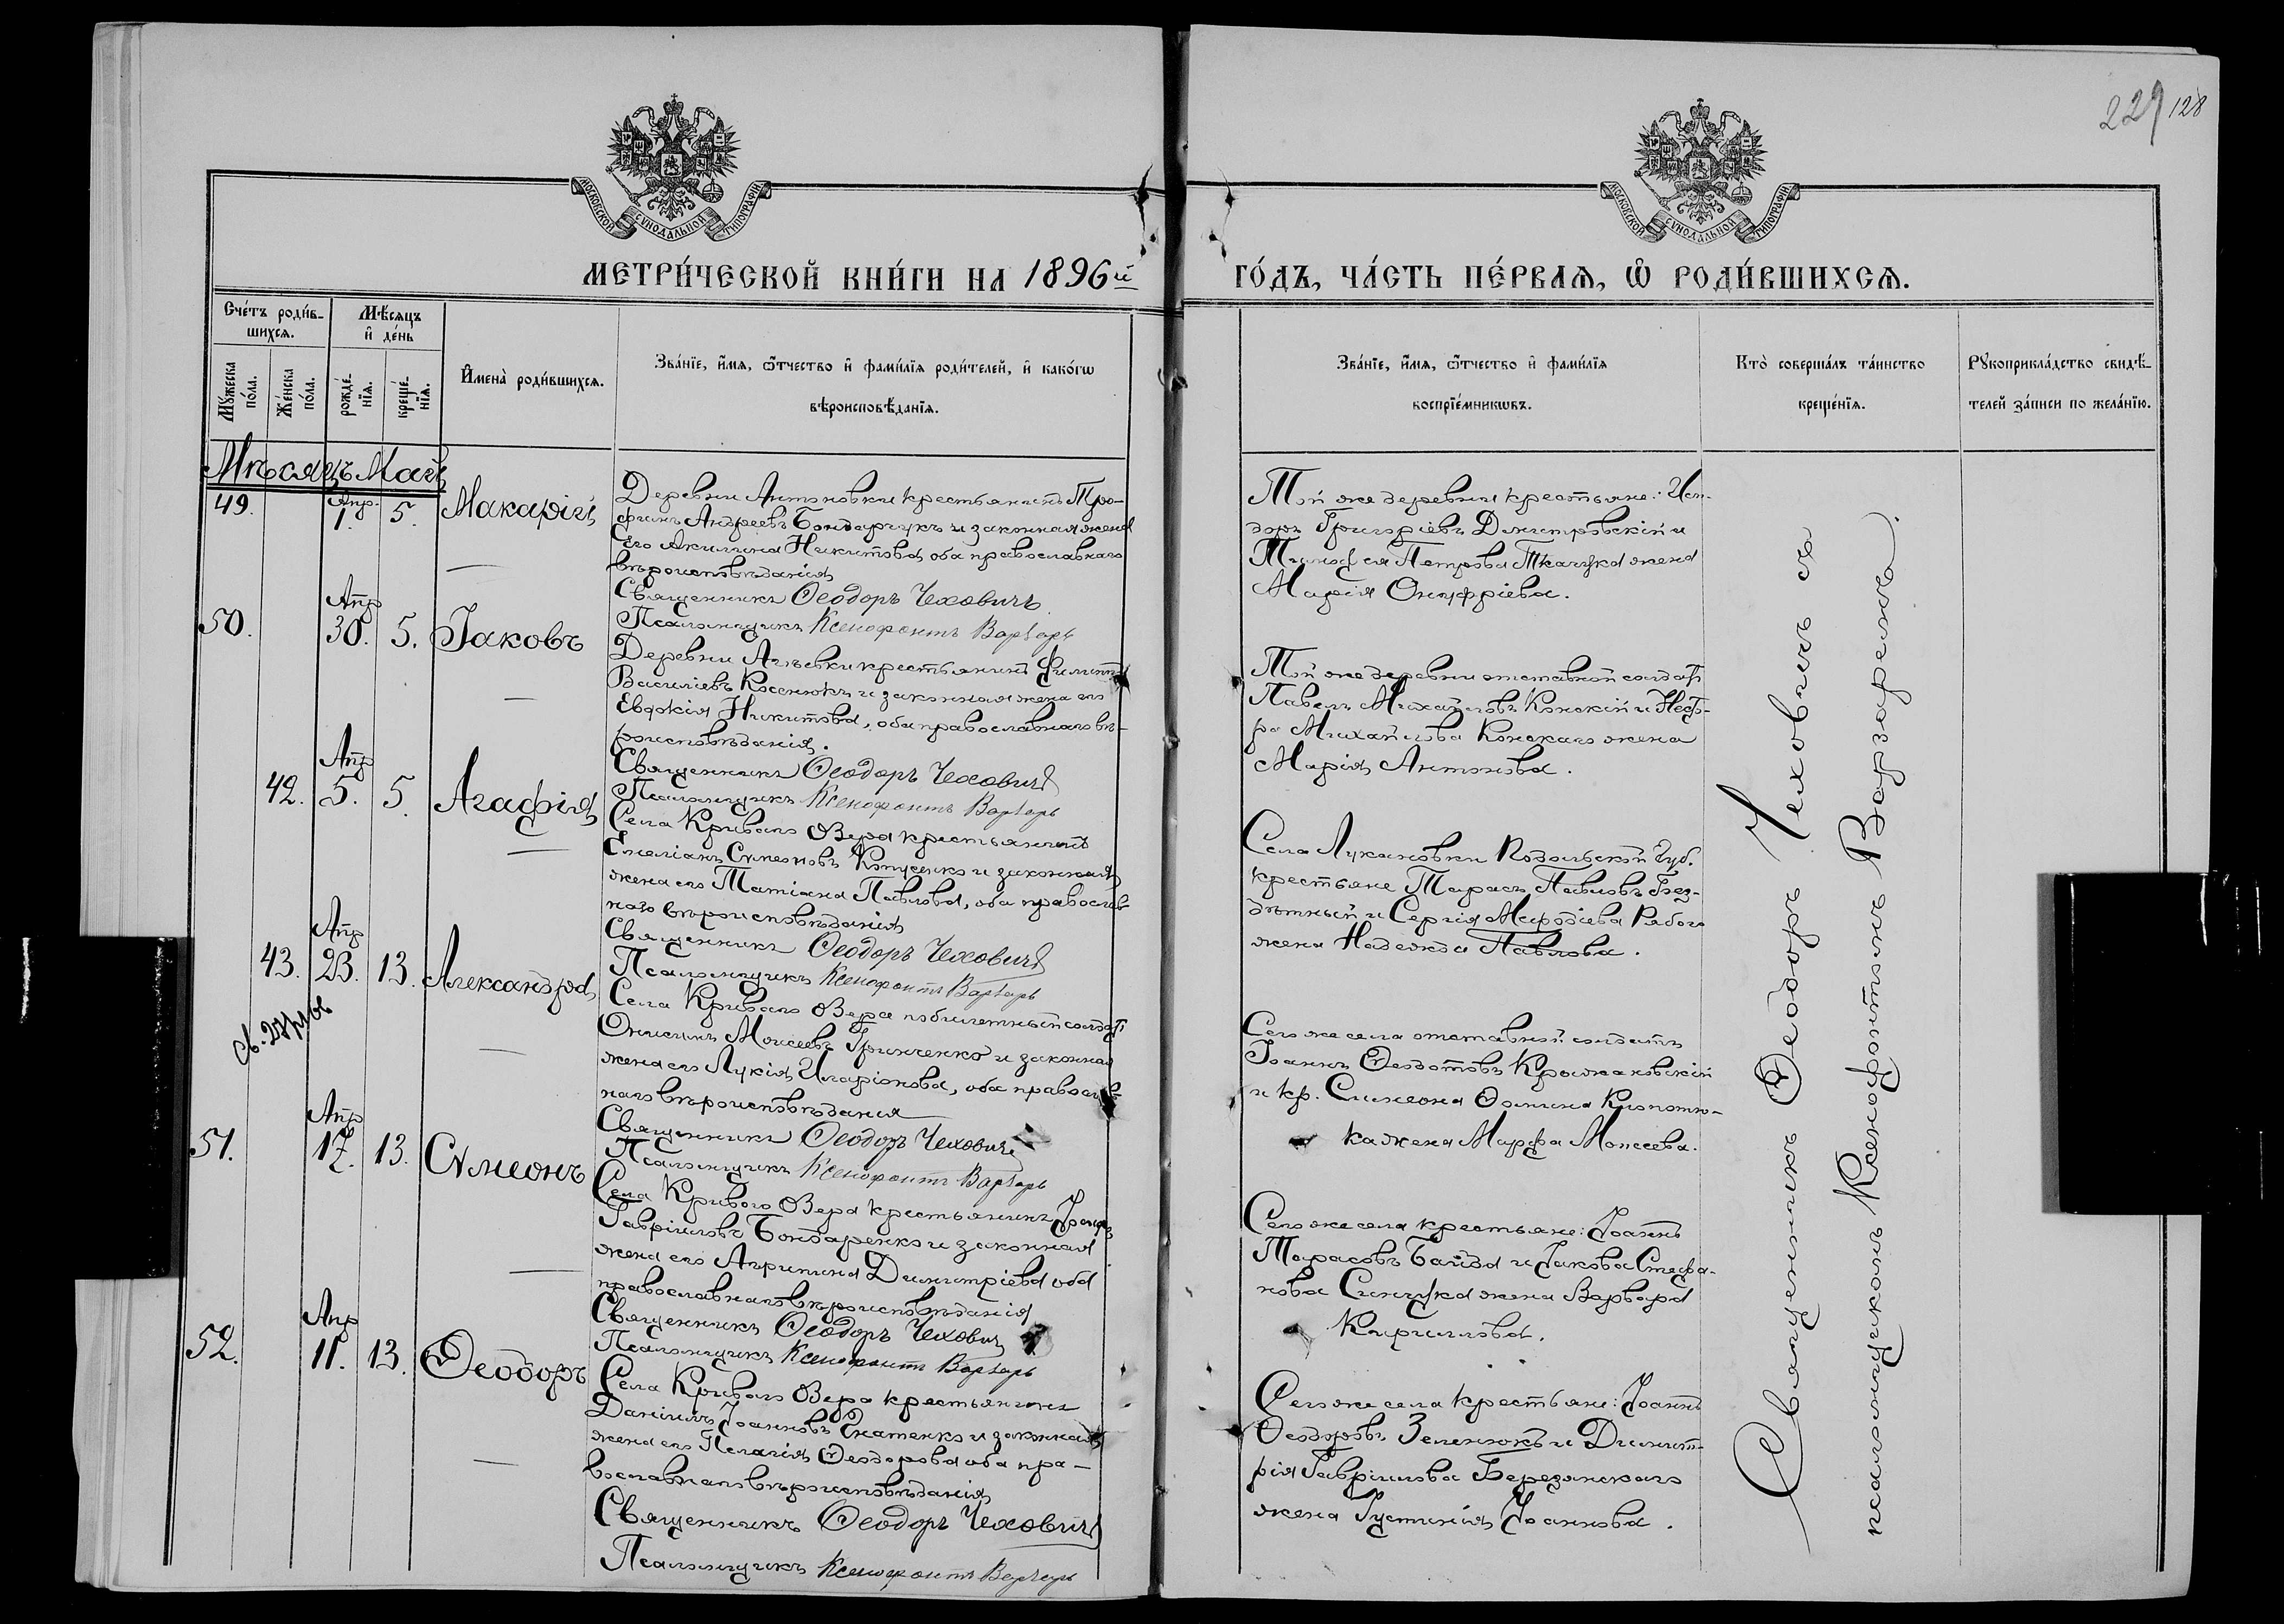 229 128
МОСКОВСКОЙ СУНОДАЛЬНОЙ ТИПОГРАФІИ
МОСКОВСКОЙ СУНОДАЛЬНОЙ ТИПОГРАФІИ
МЕТРИ́ЧЕСКОЙ КНИ́ГИ НА 1896й
ГО́ДЪ, ЧА́СТЬ ПЕ́РВАѦ, Ѽ РОДИ́ВШИХСѦ.
Сче́тъ роди́в-
шихсѧ.
Мѣ́сѧцъ
и҆ де́нь
Мꙋ́жеска
по́ла.
Же́нска
по́ла.
рожде́-
нїѧ.
креще́-
нїѧ.
И҆мена̀ роди́вшихсѧ.
Зва́нїе, и҆́мѧ, ѻ҆́тчество и҆ фами́лїѧ роди́телей, и҆ како́гѡ
вѣроисповѣ́данїѧ.
Зва́нїе, и҆́мѧ, ѻ҆́тчество и҆ фами́лїѧ
воспрїе́мникѡвъ.
Кто̀ соверша́лъ та́инство
креще́нїѧ.
Рꙋкоприкла́дство свидѣ́-
телей за́писи по жела́нїю.
Мѣсяцъ Май
49. Апр. 1. 5. Макарій
Деревни Антоновки крестьянинъ Тро-
фимъ Андреевъ Бондарчукъ и законная жена
Его Акилина Никитова, оба православнаго
вѣроисповѣданія
Священникъ Ѳеодоръ Чеховичъ
Псаломщикъ Ксенофонтъ
Той же деревни крестьяне: Иси-
доръ Григоріевъ Димитровскій и
Петрова Ткачука жена
Марія Онуфріева.
50. Апр 30. 5. Іаковъ
Деревни крестьянинъ Филиппъ
Василіевъ Косенюкъ и законная жена его
Евдокія Никитова, оба православнаго вѣ-
роисповѣданія.
Священникъ Ѳеодоръ Чеховичъ
Псаломщикъ Ксенофонтъ
Той же деревни отставной солдатъ
Павелъ Михайловъ Конскій и Нест-
ра Михайлова Конскаго жена
Марія Антонова.
42. Апр 5. 5. Агафія
Села Криваго Озера крестьянинъ
Емеліанъ Сѵмеоновъ и законная
жена его Татіана Павлова, оба православ-
наго вѣроисповѣданія
Священникъ Ѳеодоръ Чеховичъ
Псаломщикъ Ксенофонтъ
Села Лукановки Подольской Губ.
крестьяне Тарасъ Павловъ Без-
дѣтный и Сергія Меѳодіева Рябого
жена Надежда Павлова.
43. Апр 23. 13. Александра
Села Криваго Озера побилетный солдатъ
Онисимъ Моисеевъ Гринченко и законная
жена его Лукія Иларіонова, оба православ-
наго вѣроисповѣданія
Священникъ Ѳеодоръ Чеховичъ
Псаломщикъ Ксенофонтъ
Сего же села отставной солдатъ
Іоаннъ Ѳеодотовъ Крыжановскій
и кр. Симеона Ѳомина Клопотю-
ка жена Марфа Моисеева.
51. Апр 17. 13. Сѵмеонъ
Села Криваго Озера крестьянинъ
Гавріиловъ Бондаренко и законная
жена его Агрипина Димитріева оба
православнаго вѣроисповѣданія
Священникъ Ѳеодоръ Чеховичъ
Псаломщикъ Ксенофонтъ
Сего же села крестьяне: Іоаннъ
Тарасовъ Байда и Іакова Стефа-
нова жена Варвара
Кириллова.
52. Апр 11. 13. Ѳеодоръ
Села Криваго Озера крестьянинъ
Даніилъ Іоанновъ Игнатенко и законная
жена его Пелагія Ѳеодорова оба пра-
вославнаго вѣроисповѣданія
Священникъ Ѳеодоръ Чеховичъ
Псаломщикъ Ксенофонтъ
Сего же села крестьяне: Іоаннъ
Ѳеодоровъ Зеленюкъ и Димит-
рія Гавріилова Березянскаго
жена Іустинія Іоаннова.
Священникъ Ѳеодоръ Чеховичъ съ
псаломщикомъ Ксенофонтомъ